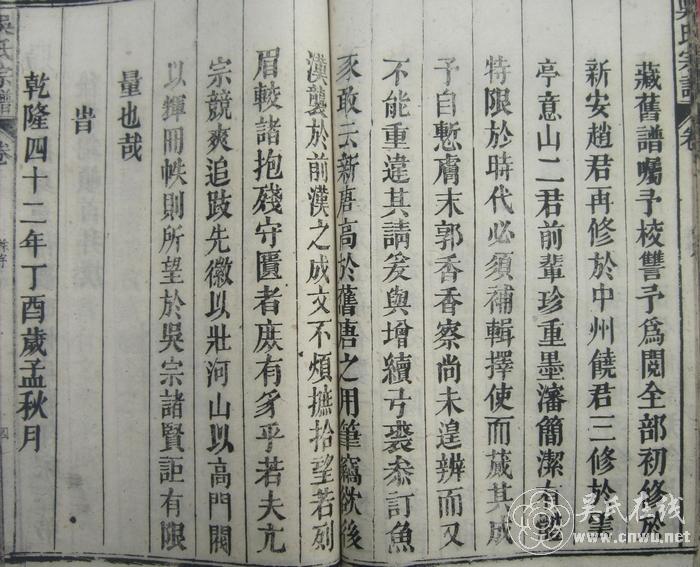 吳氏宗譜 卷
藏舊譜囑予校讐予爲閱全部初修於
新安趙君再修於中州饒君三修於望
亭意山二君前輩珍重墨瀋簡潔有
特限於時代必須補輯擇使而蕆其成
予自慙膚末郭香香察尚未遑辨而又
不能重違其請爰與增續弓裘叅訂魚
豕敢云新唐高於舊唐之用筆竊欲後
漢襲於前漢之成文不煩摭拾望若列
眉較諸抱殘守匱者庶有豸乎若夫亢
宗競爽追跂先徽以壯河山以高門閥
以輝冊帙則所望於吳宗諸賢詎有限
量也哉
旹
乾隆四十二年丁酉歲孟秋月
吳氏宗譜 卷
吴氏在线
www.cnwu.net